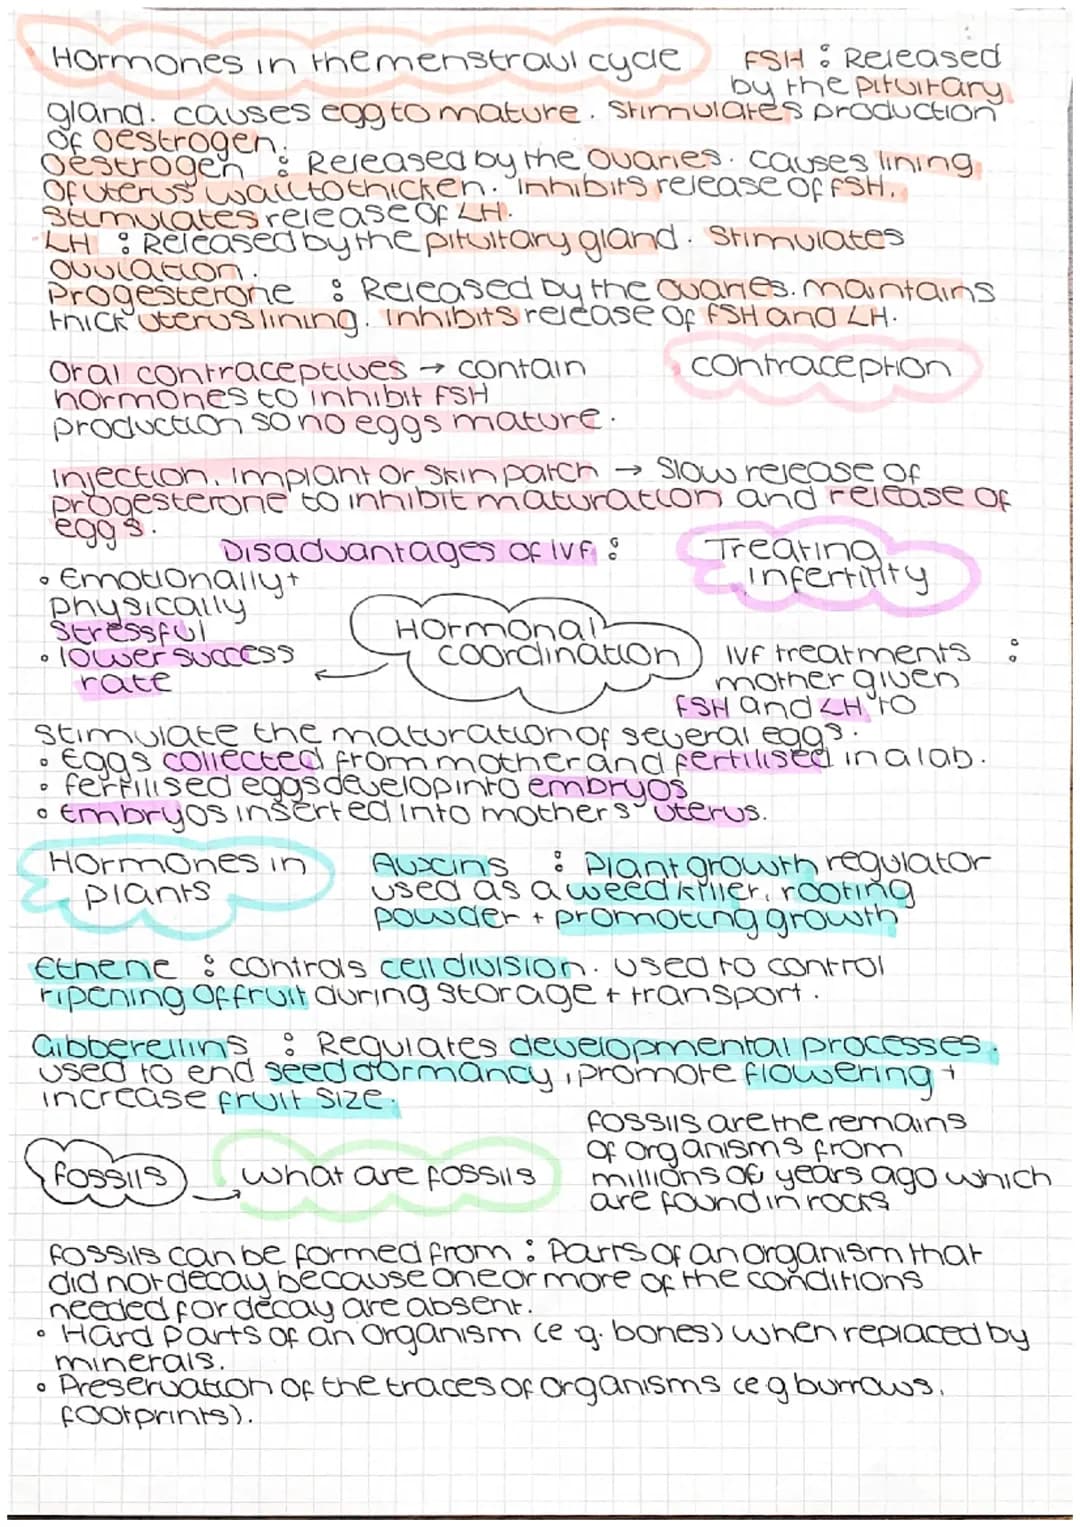 Hormones in the menstraul cycle
FSH : Released
by the pituitary
gland. causes egg to mature. Stimulates production
of oestrogen.
Oestrogen : Released by the ovaries. causes lining
of uterus wall to thicken. Inhibits release of FSH.
Stimulates release of LH.
LH : Released by the pituitary gland. Stimulates
ovulation.
Progesterone : Released by the ovaries. maintains
thick uterus lining. Inhibits release of FSH and LH.
Oral contraceptives → contain
hormones to inhibit FSH
production so no eggs mature.
contraception
Injection, implant or skin patch → Slow release of
progesterone to inhibit maturation and release of
eggs.
Disadvantages of IVF :
Treating
infertility
• Emotionally +
physically
stressful
• lower success
rate
Hormonal
coordination
IVF treatments :
mother given
FSH and LH to
stimulate the maturation of several eggs.
• Eggs collected from mother and fertilised in a lab.
• fertilised eggs develop into embryos
• Embryos inserted into mothers uterus.
Hormones in
plants
Auxins : Plant growth regulator
used as a weed killer, rooting
powder + promoting growth
Ethene : controls cell division. used to control
ripening of fruit during storage + transport.
Gibberellins : Regulates developmental processes.
used to end seed dormancy, promote flowering +
increase fruit size.
fossils
what are fossils
fossils are the remains
of organisms from
millions of years ago which
are found in rocks
fossils can be formed from : Parts of an organism that
did not decay because one or more of the conditions
needed for decay are absent.
• Hard parts of an organism (e.g. bones) when replaced by
minerals.
• Preservation of the traces of organisms (e.g burrows,
footprints).